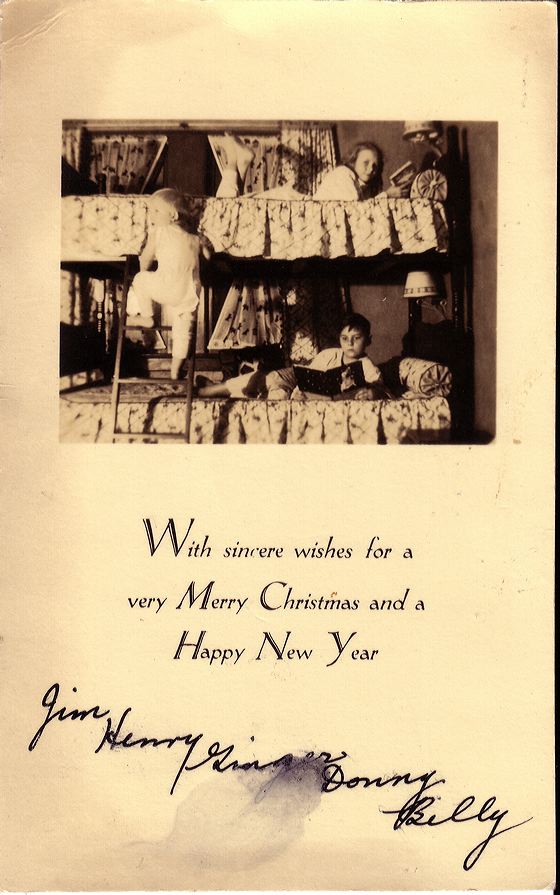 With sincere wishes for a
very Merry Christmas and a
Happy New Year
Jim
Henry
Ginger
Donny
Billy